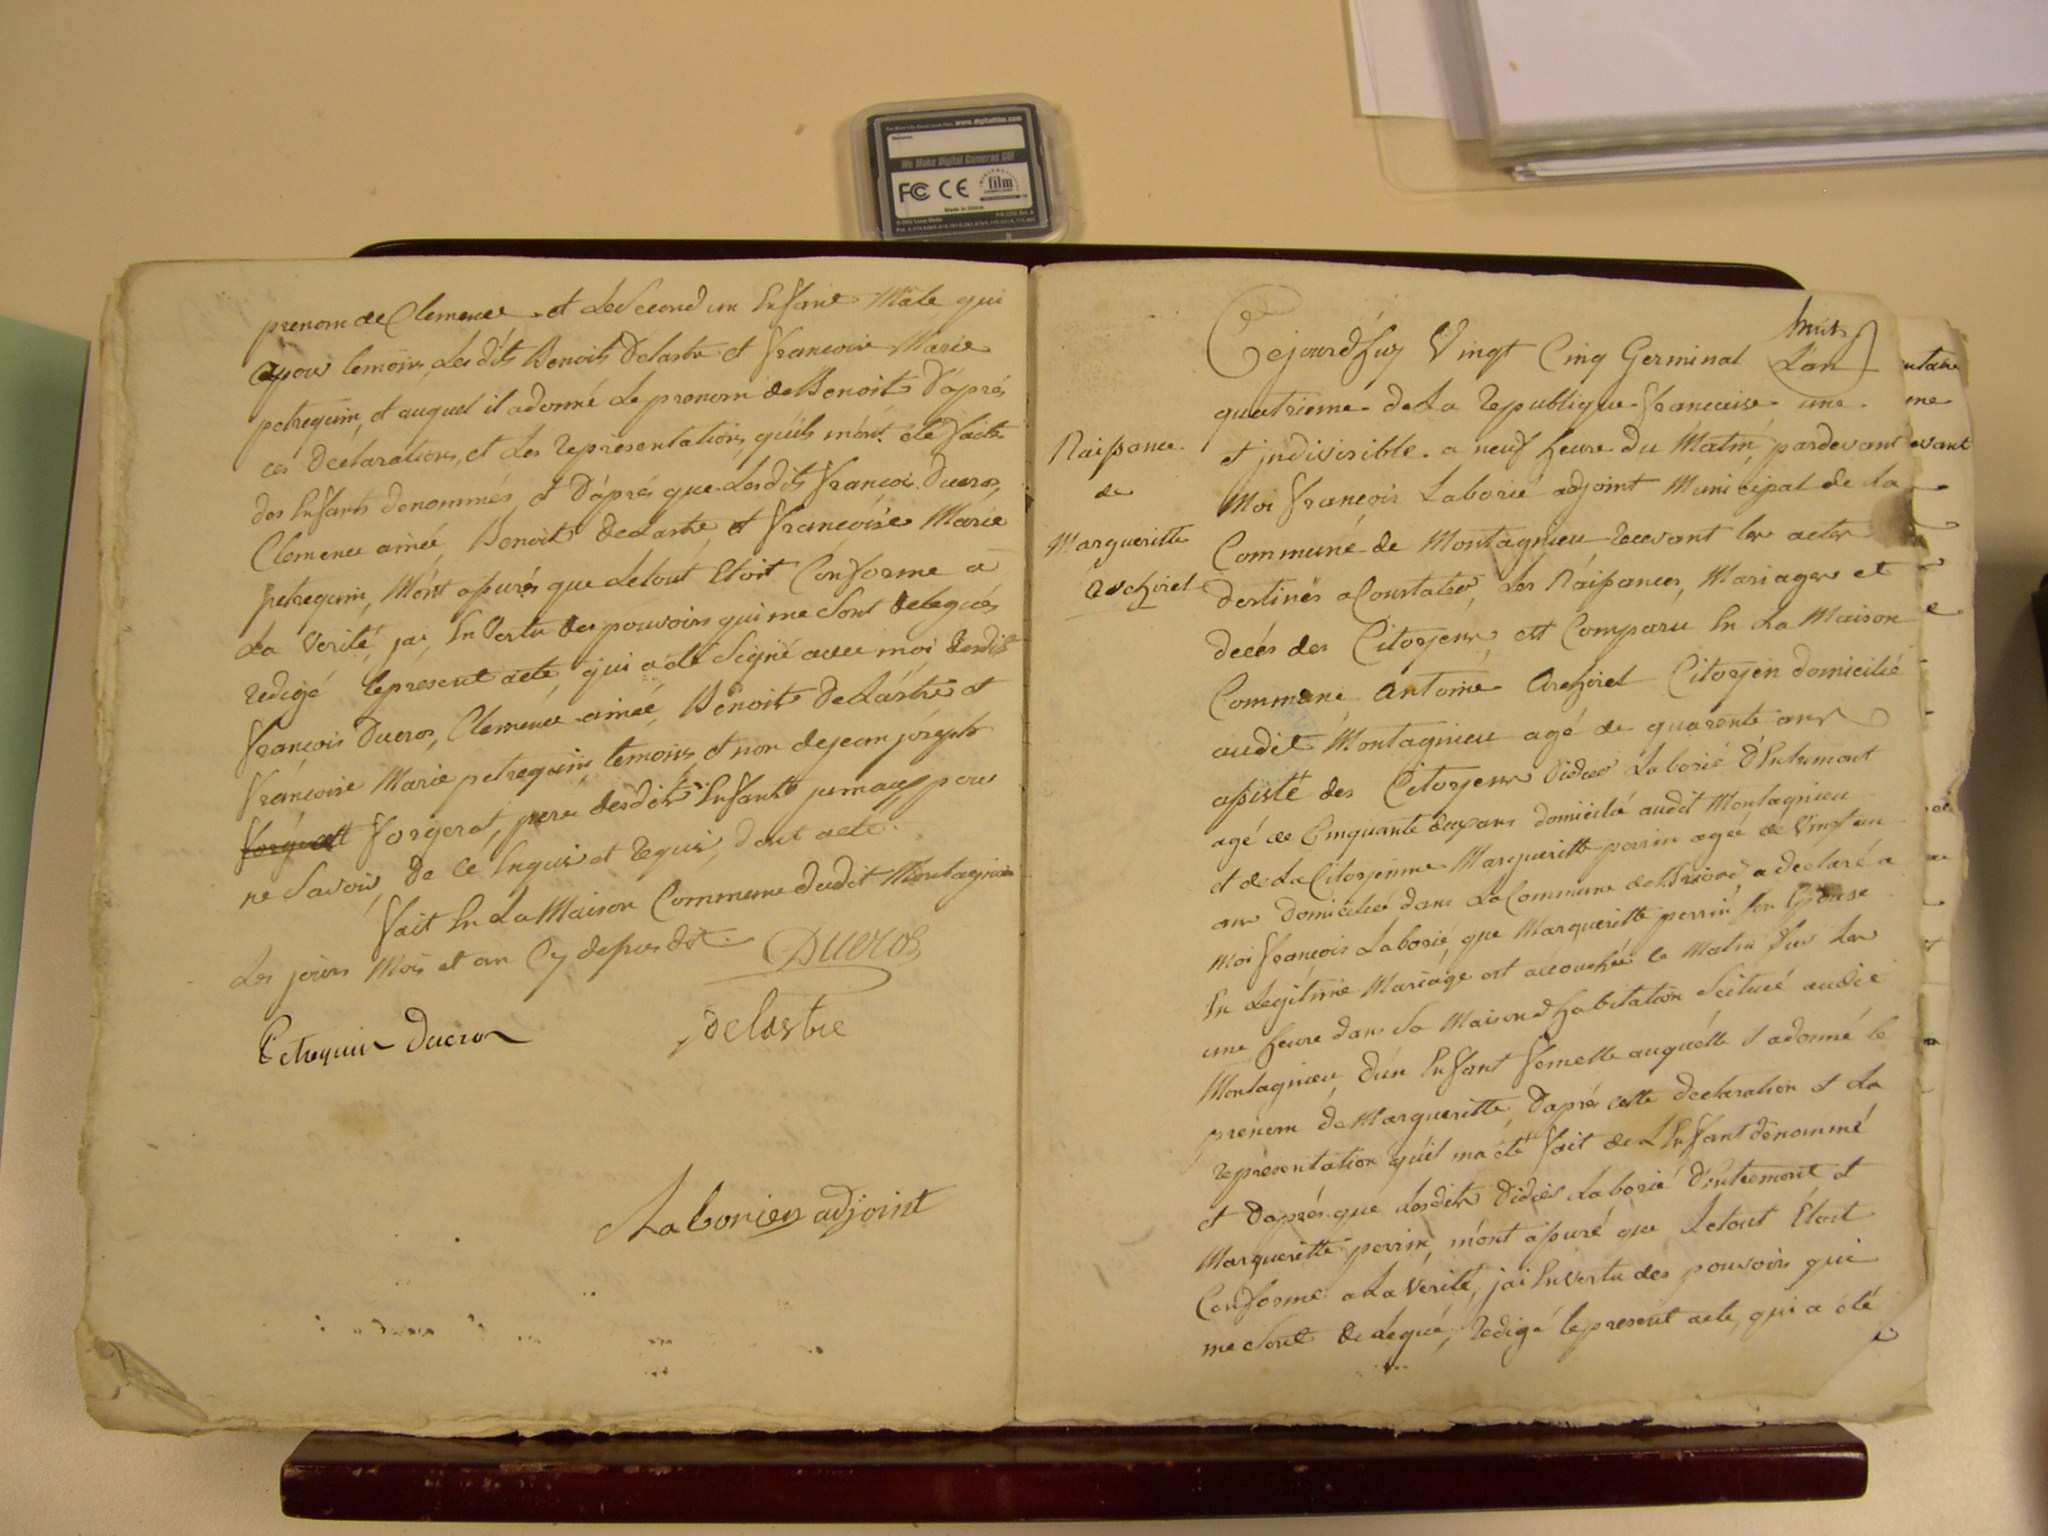 We Make Digital Cameras GO!
www.digitalfilm.com
FC CE film
Made in China
prenom de Clemence et le Second un Enfant Mâle qui
a pour temoins, Lesdits Benoits Delastre et françoise Marie
petrequin, et auquel il a donné Le prenom de Benoit D'aprés
ces Declarations, et Les representations, quils m'ont été faite
des Enfants denommés, et D'aprés que Lesdits françois Ducros,
Clemence aimée, Benoits Delastre, et françoise Marie
petrequin, M'ont assurés que Letout Etoit Conforme a
La Verité, jai, En Vertu des pouvoirs qui me Sont delegués
redigé Lepresent acte qui a été Signé avec moi, desdits
françois Ducros, Clemence aimée, Benoits Delastre et
françoise Marie petrequin temoins, et non dejean joseph
forgerat, pere desdits Enfants, jumaux pour
ne Savoir, de ce Enquis et requis, dont acte.
fait En La Maison Commune dudit Montagnieu
Les jours Mois et an Cy depus dit.
Ducros
Petrequin Ducros
Delastre
Laborier adjoint
huit
Cejourd'huy Vingt Cinq Germinal L'an
quatrieme de La republique francaise une
et jndivisible a neuf heure du Matin, pardevant
Moi françois Laborié adjoint Municipal de La
Commune de Montagnieu recevant les actes
destinés a Constater, Les Naissances, Mariages et
decés des Citoyens, est Comparu En La Maison
Commune Antoine Archirel Citoyen domicilié
audit Montagnieu agé de quarente ans
assisté des Citoyens Didier Laborié D'Entremont
agé de Cinquante deux ans domicilié audit Montagnieu
et de La Citoyenne Margueritte perrin agée de Vingt un
ans domiciliée dans La Commune de Briord a declaré a
Moi françois Laborié, que Margueritte perrin Son Epouse
En Legitime Mariage est accouchée ce Matin Sur Les
une heure dans Sa Maison dhabitation Scitueé audit
Montagnieu, d'un Enfant femelle auquelle il a donné le
prenom de Margueritte, D'aprés cette declaration et La
representation qu'il ma été fait de L'Enfant denommé
et D'aprés que Lesdits Didier Laborié D'entremont et
Margueritte perrin, m'ont assuré que Letout Etoit
Conforme a La Verité, jai En vertu des pouvoirs qui
me Sont delegué, redigé lepresent acte, qui a été
Naissance
de
Margueritte
Archirel